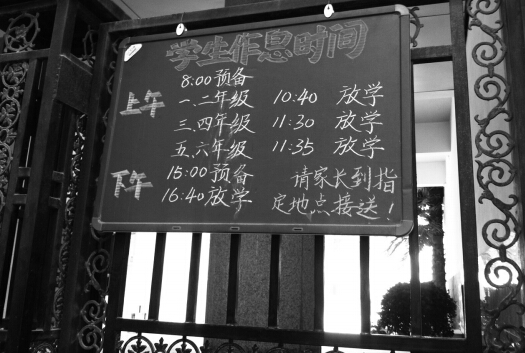 学生作息时间
上午
8:00预备
一、二年级 10:40 放学
三、四年级 11:30 放学
五、六年级 11:35 放学
下午
15:00预备
16:40放学
请家长到指
定地点接送！